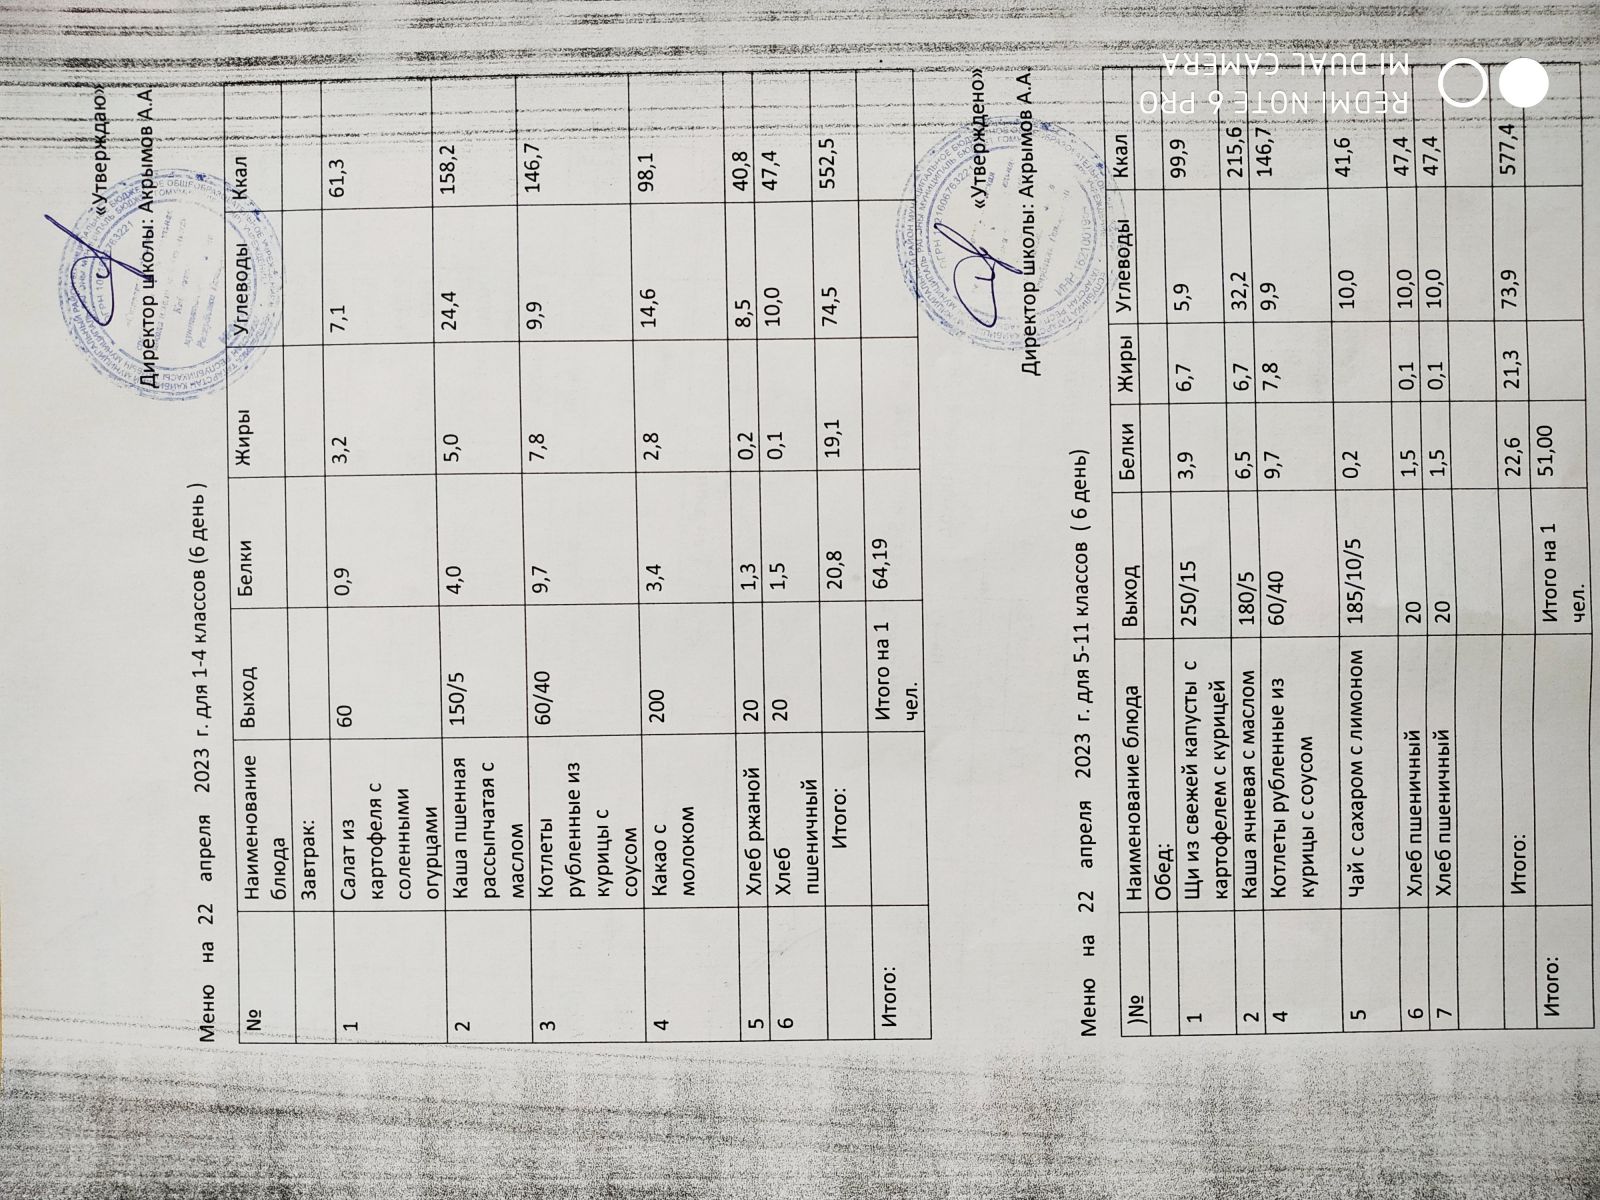 «Утверждаю»
Директор школы: Акрымов А.А.
Меню на 22 апреля 2023 г. для 1-4 классов (6 день )
№ Наименование блюда Выход Белки Жиры Углеводы Ккал
Завтрак:
1 Салат из картофеля с соленными огурцами 60 0,9 3,2 7,1 61,3
2 Каша пшенная рассыпчатая с маслом 150/5 4,0 5,0 24,4 158,2
3 Котлеты рубленные из курицы с соусом 60/40 9,7 7,8 9,9 146,7
4 Какао с молоком 200 3,4 2,8 14,6 98,1
5 Хлеб ржаной 20 1,3 0,2 8,5 40,8
6 Хлеб пшеничный 20 1,5 0,1 10,0 47,4
Итого: 20,8 19,1 74,5 552,5
Итого: Итого на 1 чел. 64,19
«Утверждено»
Директор школы: Акрымов А.А.
Меню на 22 апреля 2023 г. для 5-11 классов ( 6 день)
)№ Наименование блюда Выход Белки Жиры Углеводы Ккал
Обед:
1 Щи из свежей капусты с картофелем с курицей 250/15 3,9 6,7 5,9 99,9
2 Каша ячневая с маслом 180/5 6,5 6,7 32,2 215,6
4 Котлеты рубленные из курицы с соусом 60/40 9,7 7,8 9,9 146,7
5 Чай с сахаром с лимоном 185/10/5 0,2 10,0 41,6
6 Хлеб пшеничный 20 1,5 0,1 10,0 47,4
7 Хлеб пшеничный 20 1,5 0,1 10,0 47,4
Итого: 22,6 21,3 73,9 577,4
Итого: Итого на 1 чел. 51,00
REDMI NOTE 6 PRO
MI DUAL CAMERA